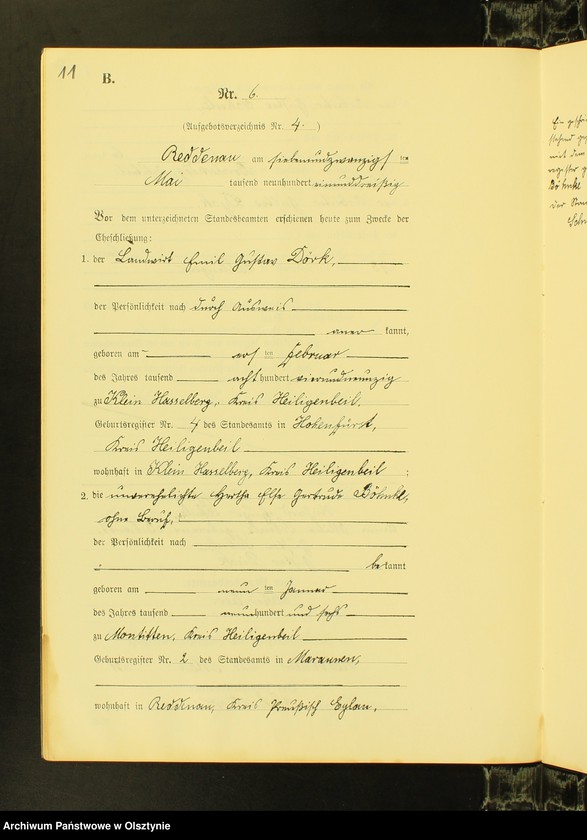 11
B.
Nr. 6.
(Aufgebotsverzeichnis Nr. 4. )
Reddenau am siebenundzwanzigsten
Mai tausend neunhundert einunddreißig
Vor dem unterzeichneten Standesbeamten erschienen heute zum Zwecke der
Eheschließung:
1. der Landwirt Emil Gustav Dörk,
der Persönlichkeit nach durch Ausweis
aner kannt,
geboren am ten Februar
des Jahres tausend acht hundert vierundneunzig
zu Klein Hasselberg, Kreis Heiligenbeil.
Geburtsregister Nr. 4 des Standesamts in Hohenfürst,
Kreis Heiligenbeil
wohnhaft in Klein Hasselberg, Kreis Heiligenbeil ;
2. die unverehelichte Hertha Else Gertrude Böhnke,
ohne Beruf,
der Persönlichkeit nach
be kannt
geboren am neun ten Januar
des Jahres tausend neunhundert und sechs
zu Montitten, Kreis Heiligenbeil
Geburtsregister Nr. 2 des Standesamts in Maraunen,
wohnhaft in Reddenau, Kreis Preußisch Eylau,
Archiwum Państwowe w Olsztynie